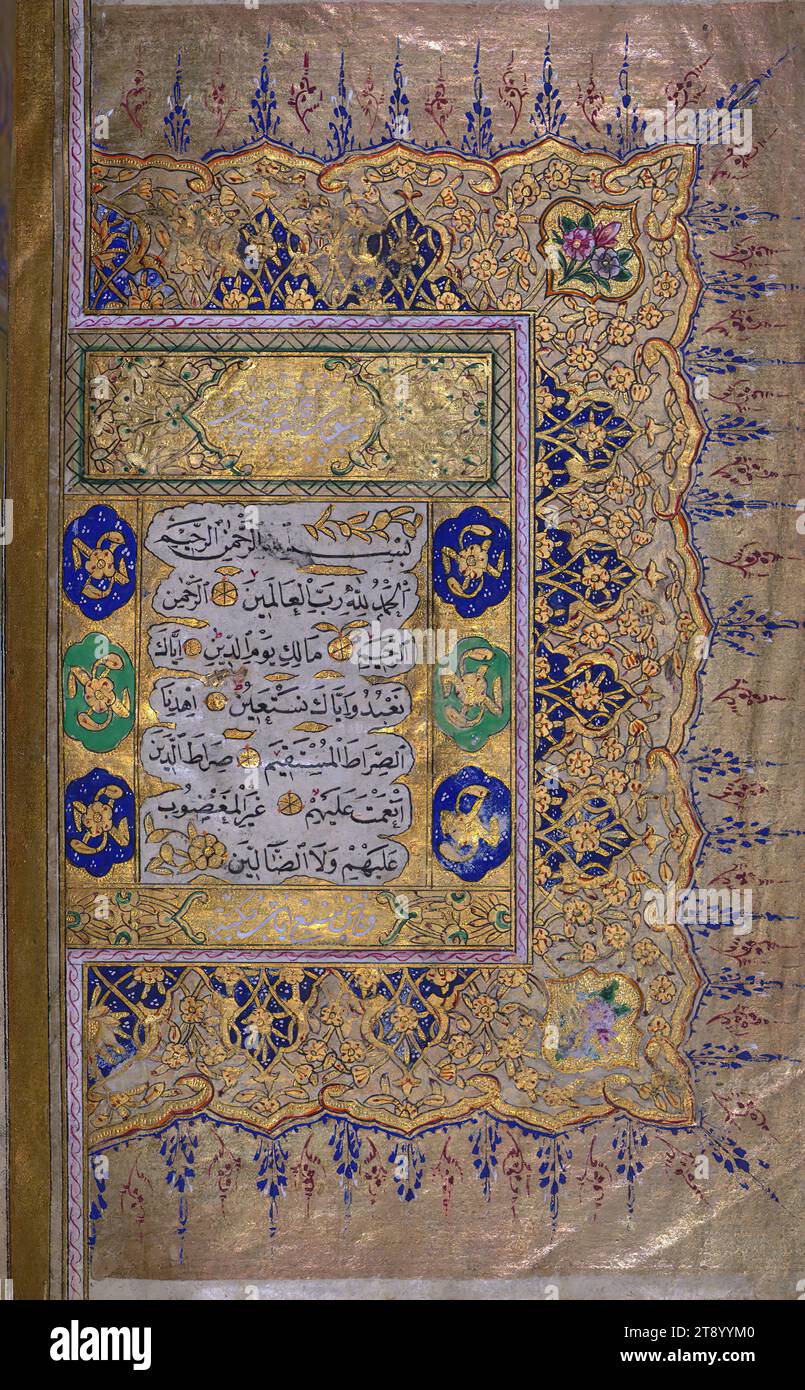 بِسْمِ الرَّحْمٰنِ الرَّحِيمِ
اَلْحَمْدُ لِلّٰهِ رَبِّ الْعَالَمِينَ الرَّحْمٰنِ
الرَّحِيمِ مَالِكِ يَوْمِ الدِّينِ اِيَّاكَ
نَعْبُدُ وَاِيَّاكَ نَسْتَعِينُ اِهْدِنَا
الصِّرَاطَ الْمُسْتَقِيمَ صِرَاطَ الَّذِينَ
اَنْعَمْتَ عَلَيْهِمْ غَيْرِ الْمَغْضُوبِ
عَلَيْهِمْ وَلَا الضَّالِّينَ
وهى سبع ايات مكية
alamy
Image ID: 2T8YYM0
www.alamy.com